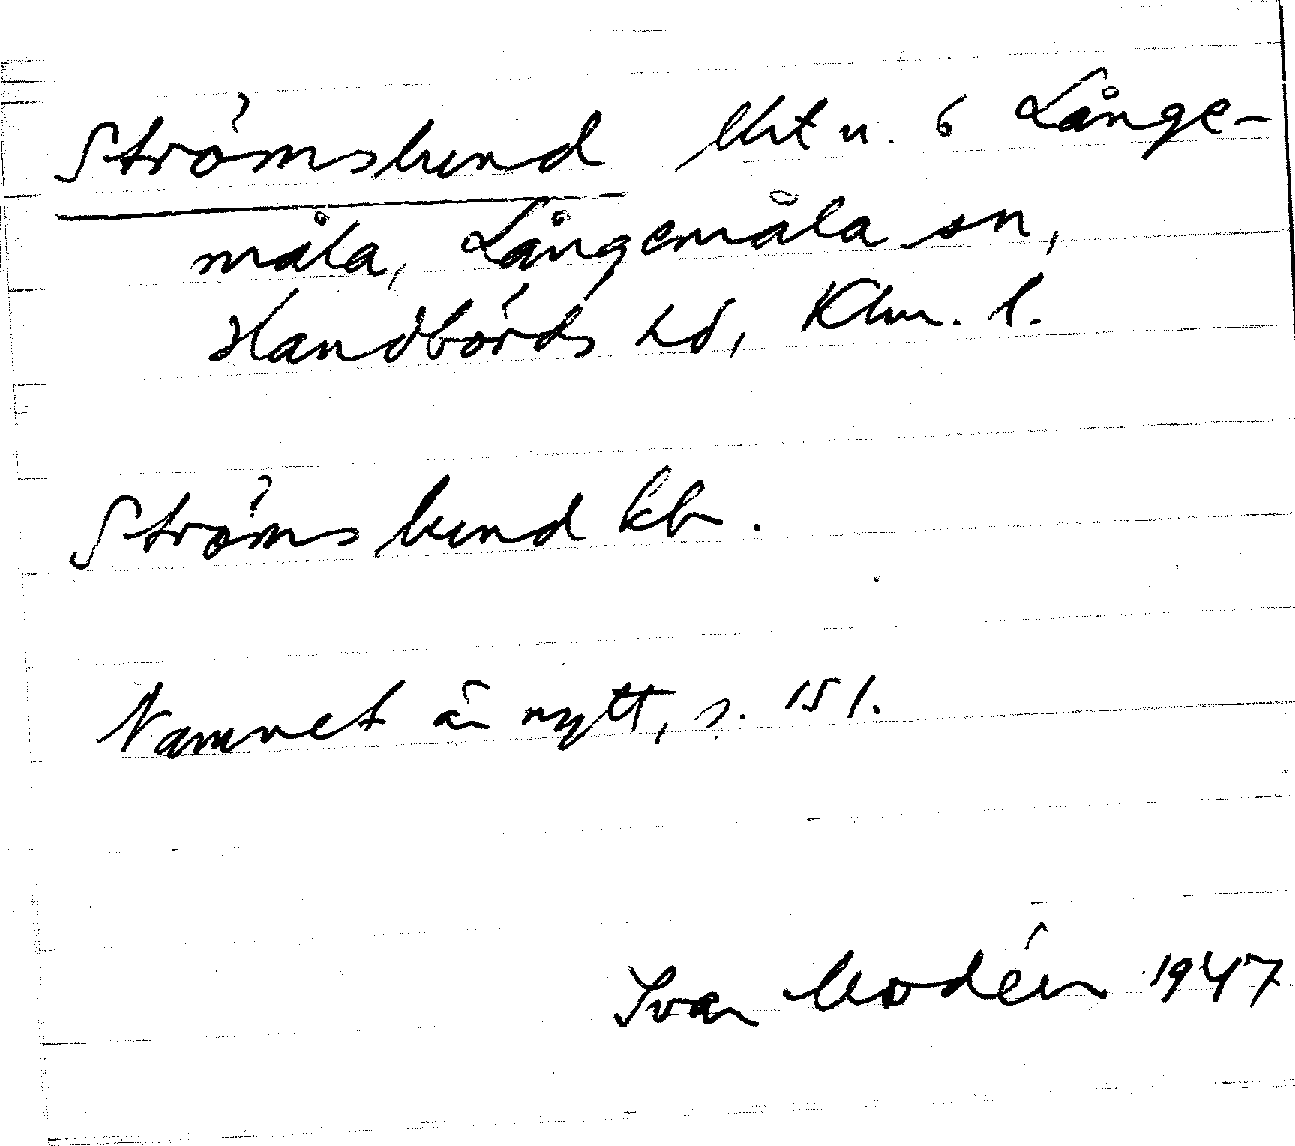 Strömslund lht u. 6 Långe-
måla, Långemåla sn,
Handbörds hd, Klm. l.
Strömslund kb.
Namnet är nytt, s. 151.
Ivar Modéer 1947